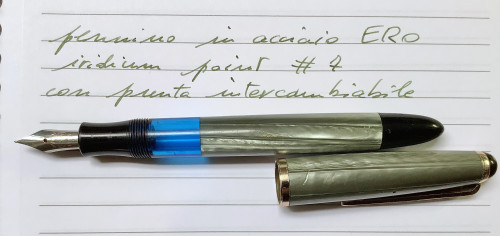 pennino in acciaio ERO
iridium point # 4
con punta intercambiabile